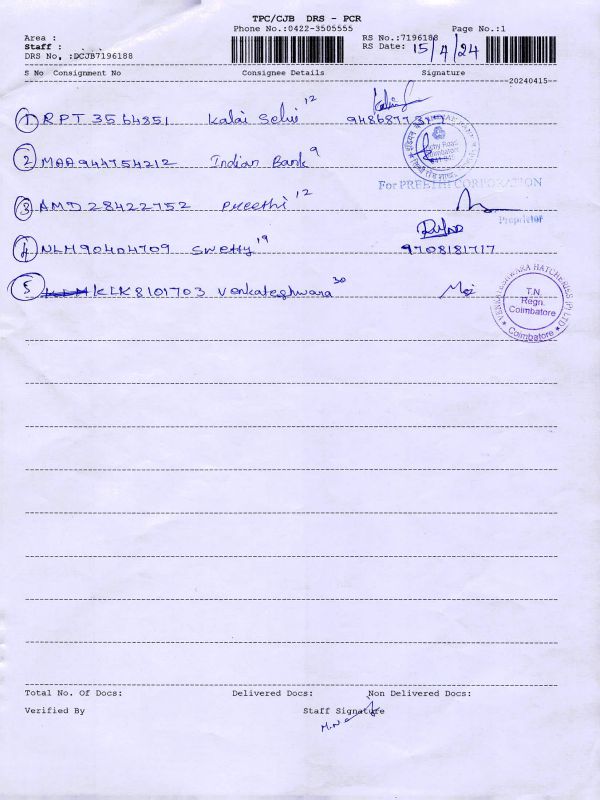 TPC/CJB DRS - PCR
Phone No.:0422-3505555 Page No.:1
Area : RS No.:7196188
Staff : RS Date: 15/4/24
DRS No. :DCJB7196188
S No Consignment No Consignee Details Signature
20240415
1 RPT 3564851 Kalai Selvi 12
2 MAA944754212 Indian Bank 9
For PREETHI CORPORATION
3 AMD 28422752 Preethi 12
Proprietor
4 NLM90404709 Swetty 19 9708181717
5 KLK8101703 Venkateshwara 30
VENKATESHWARA HATCHERIES (P) LTD
T.N.
Regn.
Coimbatore
Total No. Of Docs: Delivered Docs: Non Delivered Docs:
Verified By Staff Signature